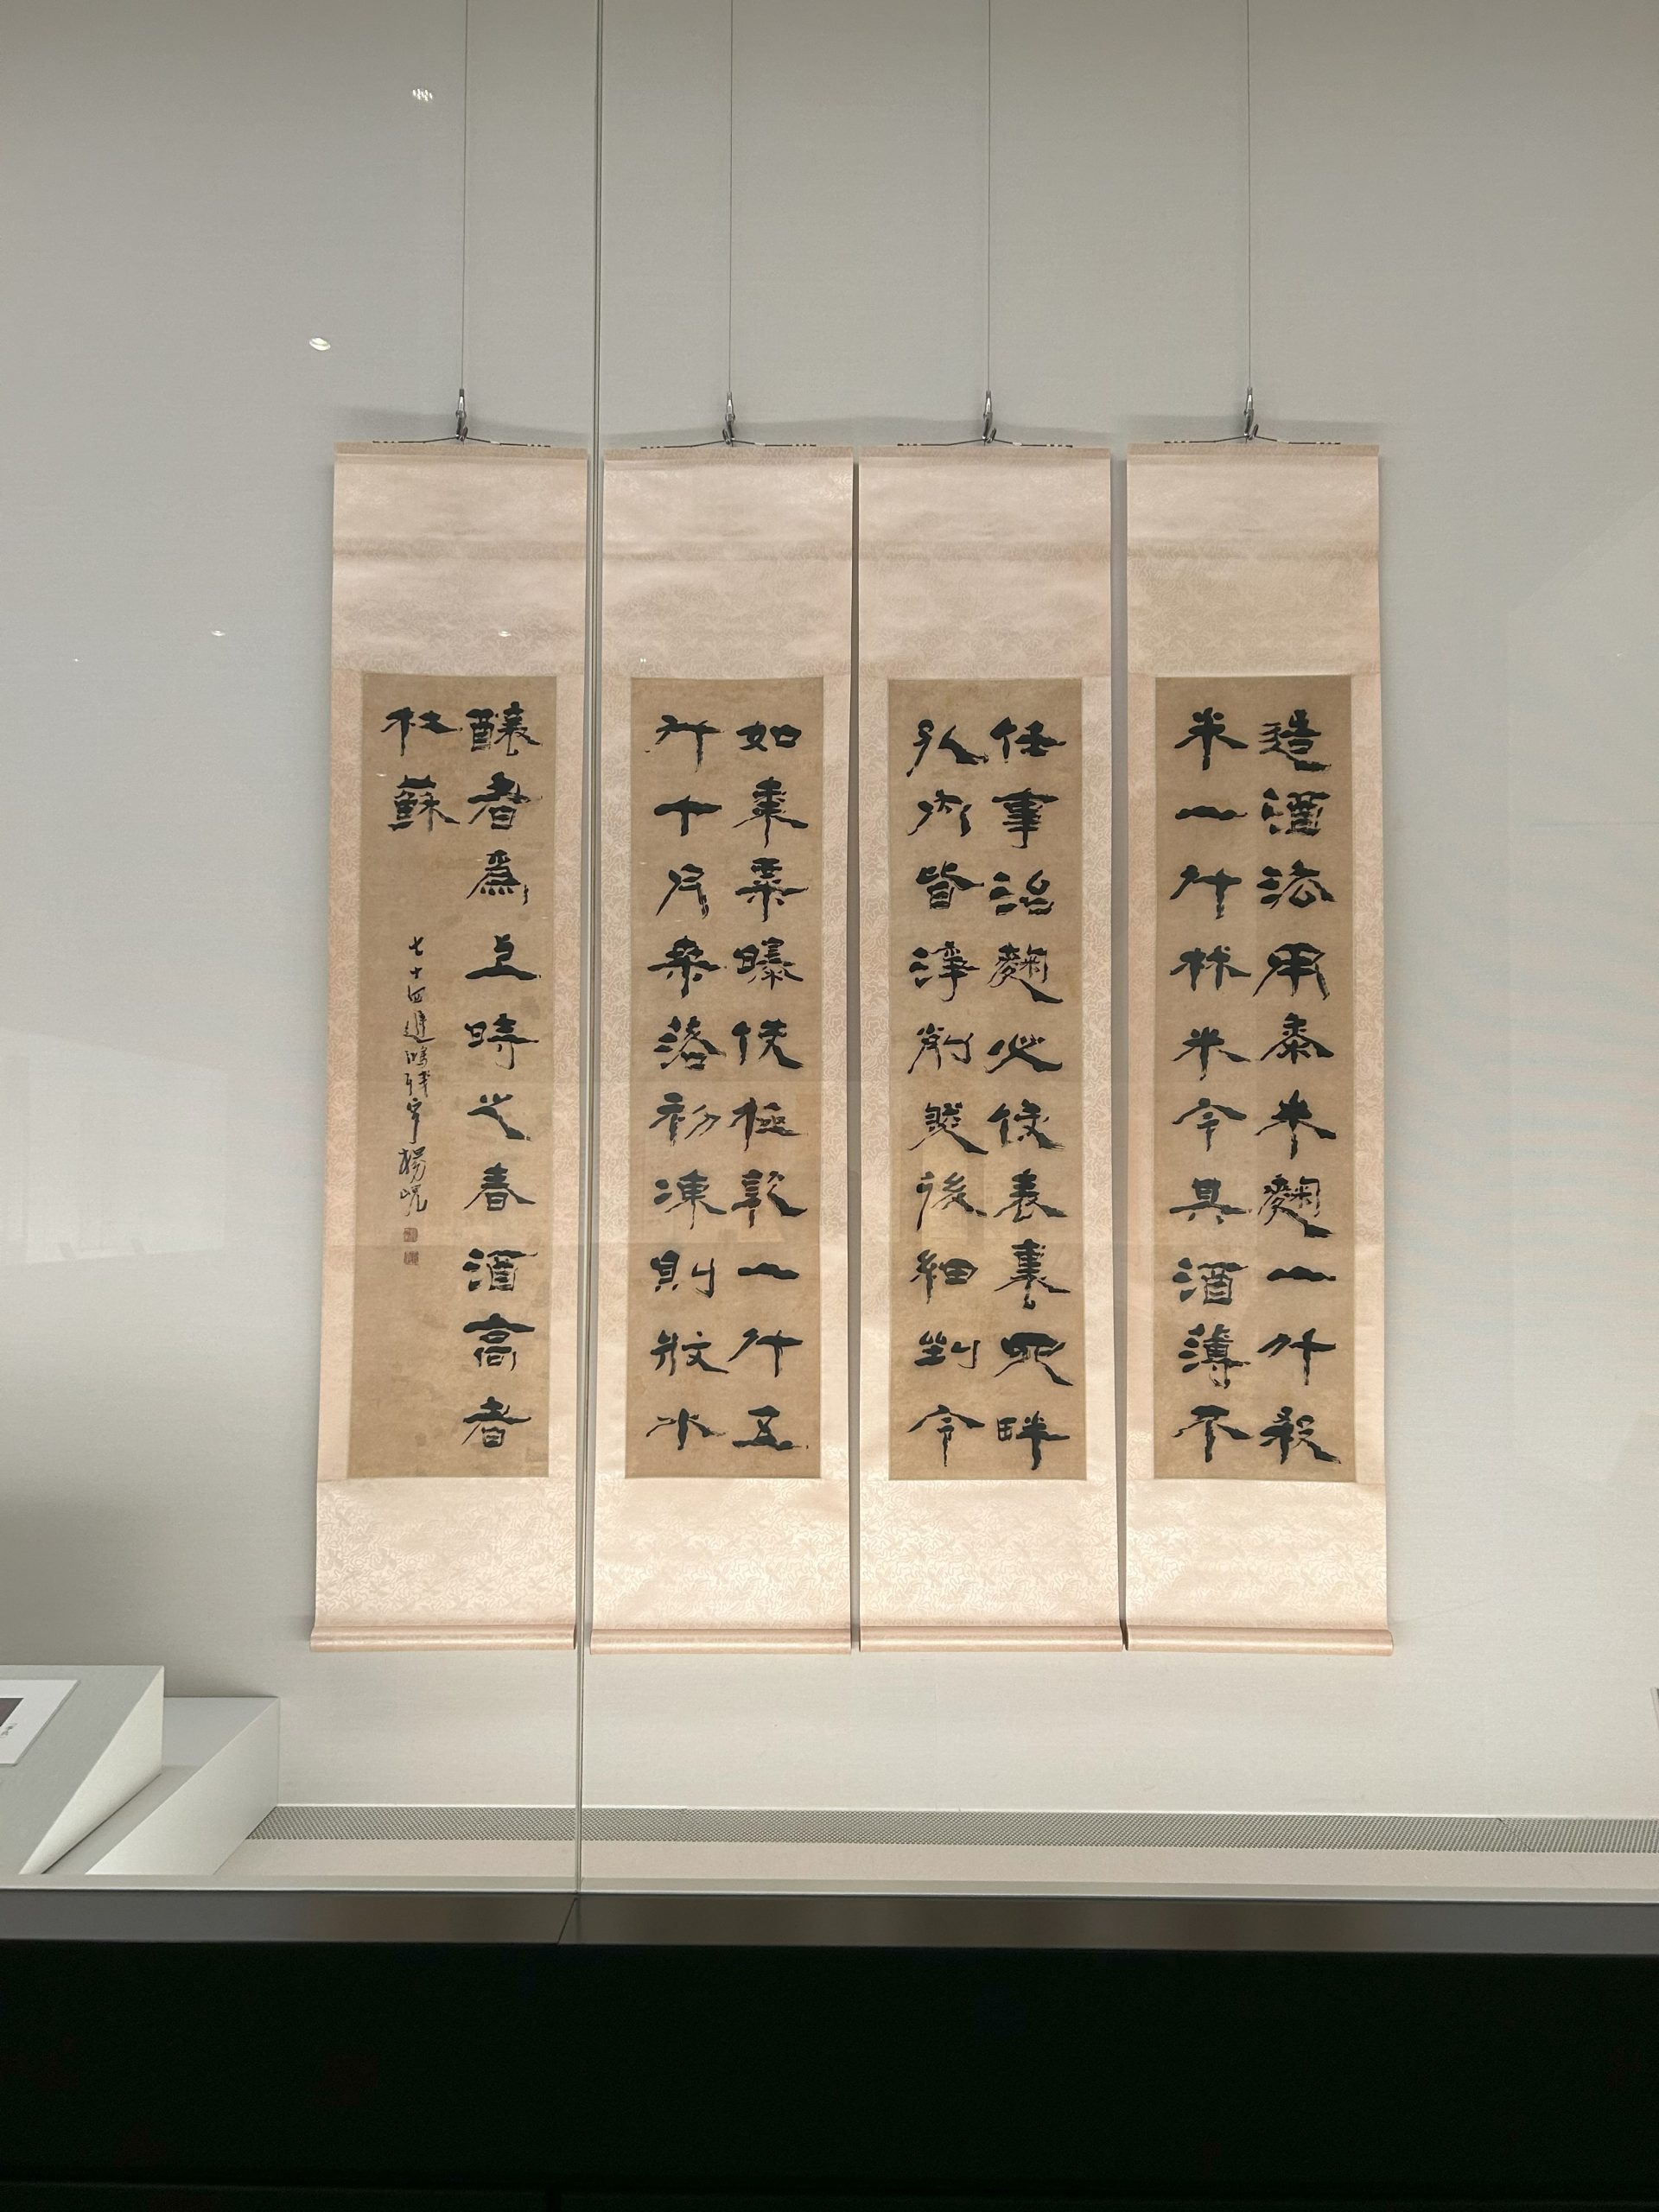 造酒法用黍米麴一斗殺
米一斗秫米令其酒薄不
任事治麴必使表裏四畔
孔內皆淨削然後細剉令
如棗栗曝使極乾一斗五
升十月桑落初凍則收水
釀者爲上時之春酒高者
杜蘇
七十四遲鴻殘叟楊峴